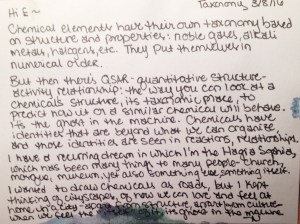 Taxonomy, 3/8/16
Hi E~
Chemical elements have their own taxonomy based
on structure and properties: noble gases, alkali
metals, halogens, etc. They put themselves in
numerical order.
But then there's QSAR - quantitative structure-
activity relationship: the way you can look at a
chemical's structure, its taxonomic place, to
predict how it or a similar chemical will behave.
It's the ghost in the machine. Chemicals have
identities that are beyond what we can organize,
and those identities are seen in reactions, relationships.
I have a recurring dream in which I'm the Hagia Sophia,
which has been many things to many people - church,
mosque, museum, yet also something else, something itself.
I wanted to draw chemicals as roads, but I kept
thinking of cityscapes, of how we can love and feel at
home
we see the ghost in the machine